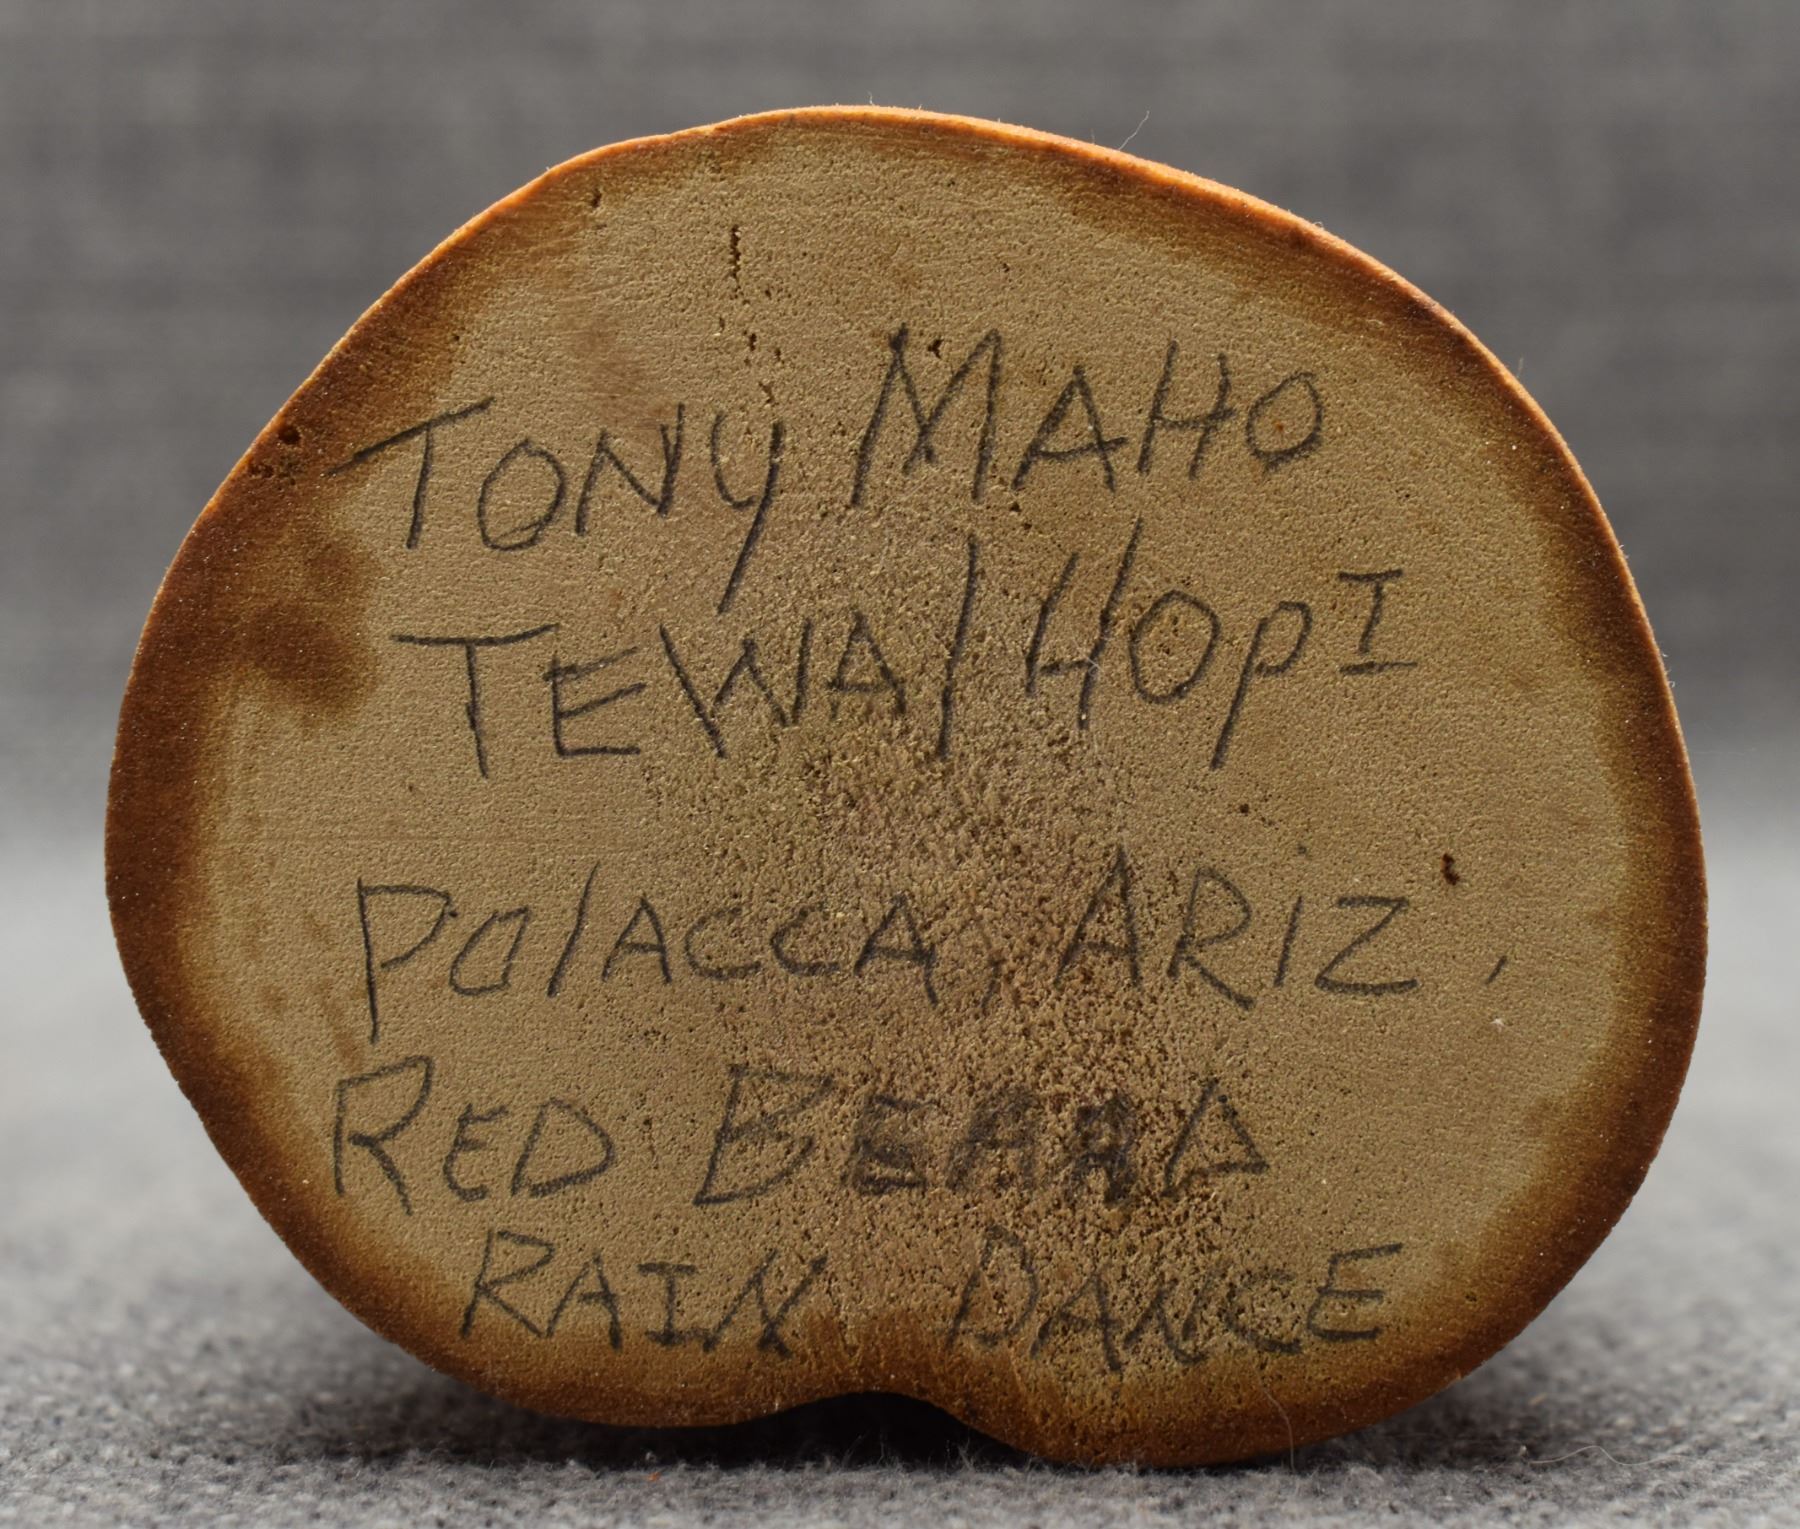 TONY MAHO
TEWA/HOPI
POLACCA, ARIZ.
RED BEARD
RAIN DANCE